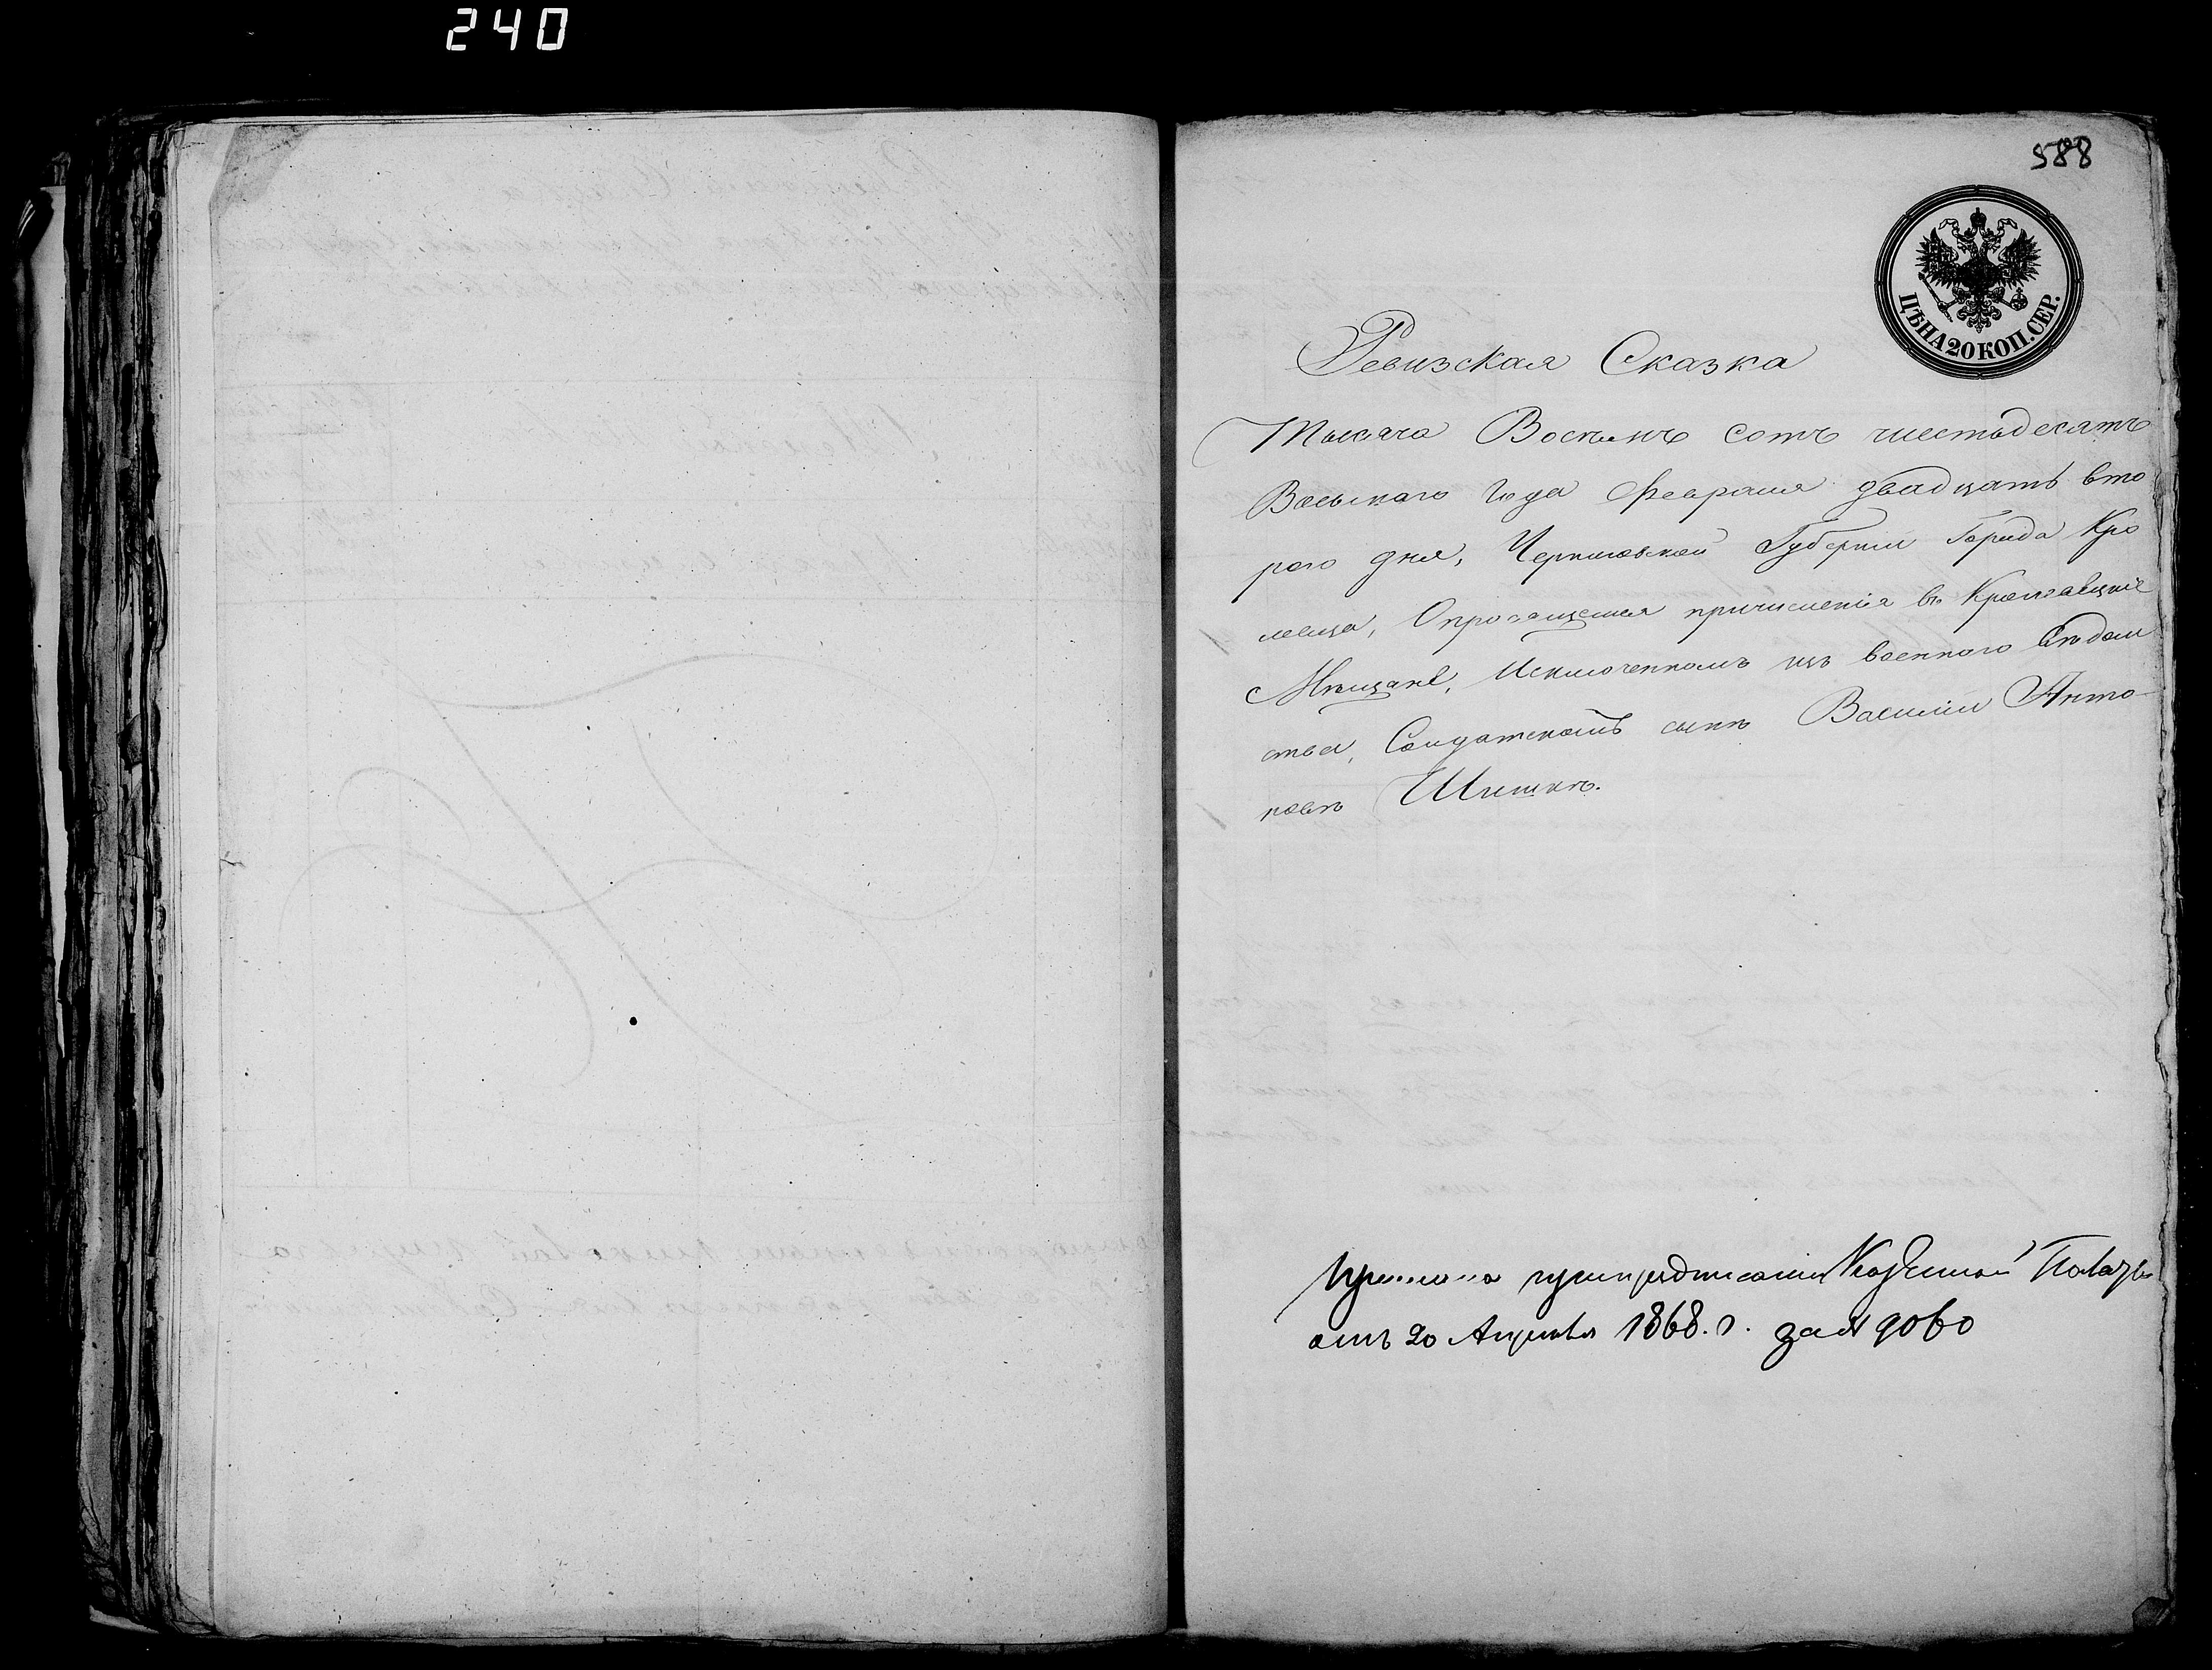 240
588
ЦѢНА 20 КОП. СЕР.
Ревизская Сказка
Тысяча Восемь сотъ шестьдесятъ
Восьмаго года Февраля двадцать вто
рого дня, Черниговской Губерніи Города Кро
левца, О просящемся причисленія въ Кролевецкіе
Мѣщане, Исключенномъ изъ военнаго вѣдом
ства, Солдатскомъ сынѣ Василіи Анто-
новѣ Шишкѣ.
при предписаніи Казенной Палаты
отъ 20 Апреля 1868. г. за № 9060